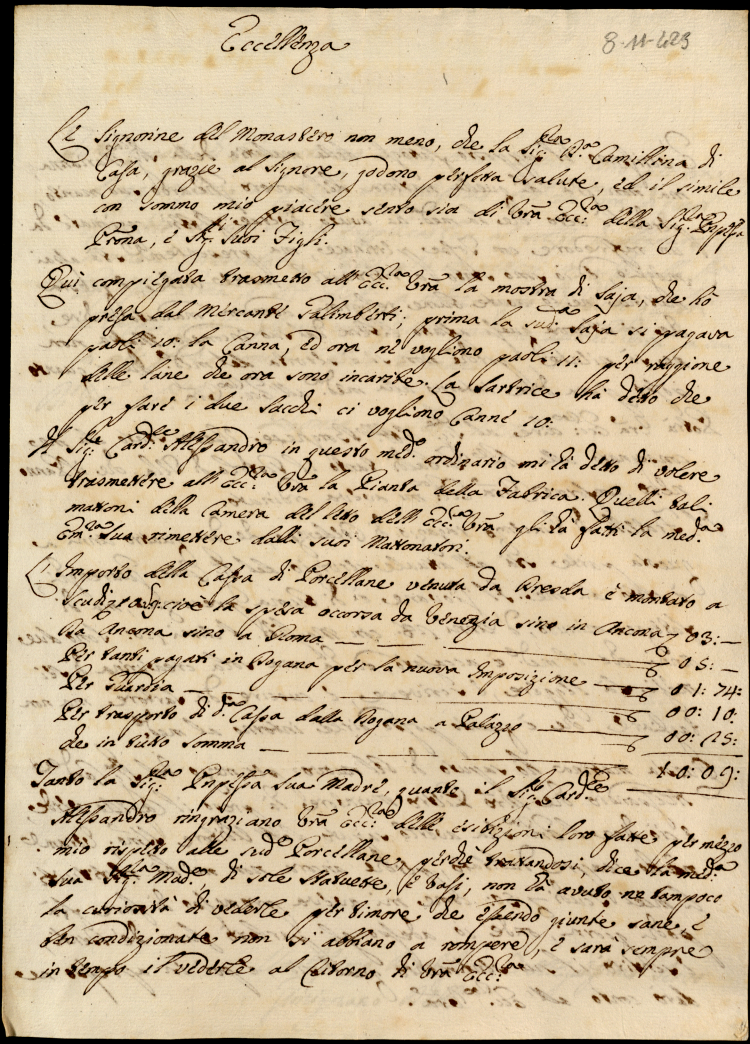 Eccellenza
8-11-423
Le Signorine del Monastero non meno, che la Sig.ra D.a Camillina di
Casa, grazie al Signore, godono perfetta salute, ed il simile
con sommo mio piacere sento sia di Vrã Ecc.za della Sig.ra Pnpéssa
Prona, e Sig.ri suoi Figli.
Qui compiegata trasmetto all'Ecc.za Vrã la mostra di Saja, che hò
presa dal Mercante Palimberti; prima la sud.a Saja si pagava
paoli 10: la Canna, ed ora ne vogliono paoli 11: per raggione
delle lane che ora sono incarite. La Sartrice hà detto che
per fare i due Sacchi ci vogliono Canne 10:
Il Sig.re Card.le Alessandro in questo med.o ordinario mi hà detto di volere
trasmettere all'Ecc.za Vrã la Pianta della Fabrica. Quelli tali
mattoni della Camera del letto dell'Ecc.za Vrã gli hà fatti la med.a
Em.za Sua rimettere dalli suoi Mattonatori.
L'Importo della Cassa di Porcellane venuta da Dresda è montato a
cioè la spesa occorsa da Venezia sino in Ancona 03: —
Da Ancona sino a Roma — 05: —
Per tanti pagati in Dogana per la nuova Imposizione — 01: 74:
Per Guardia — 00: 10:
Per trasporto di d.a Cassa dalla Dogana a Palazzo — 00: 25:
che in tutto somma — 10: 09:
Tanto la Sig.ra Pnpéssa sua Madre, quanto il Sig.re Card.le
Alessandro ringraziano Vrã Ecc.za delle esibizioni loro fatte per mezzo
mio rispetto alle sud.e Porcellane, perche trattandosi, dice la med.a
sua Sig.ra Mad.e di sole statuette, e vasi, non hà avuto ne tampoco
la curiosità di vederle per timore che essendo giunte sane, e
ben condizionate non si abbiano a rompere, e sarà sempre
in tempo il vederle al ritorno di Vrã Ecc.za